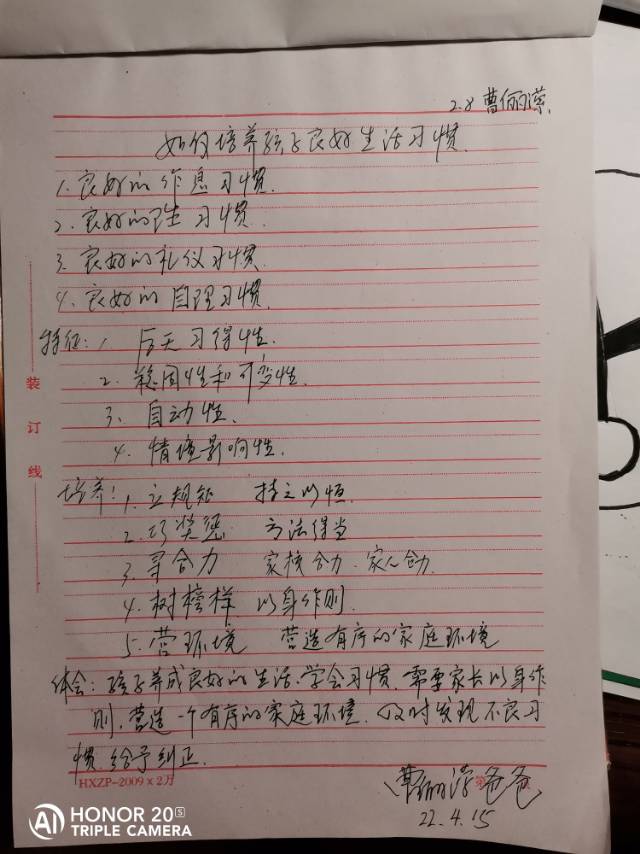 2.8 曹俪潆
如何培养孩子良好生活习惯.
1. 良好的作息习惯.
2. 良好的卫生习惯.
3. 良好的礼仪习惯.
4. 良好的自理习惯.
特征: 1. 后天习得性.
2. 稳固性和可变性.
3. 自动性.
4. 情境影响性.
培养: 1. 立规矩 持之以恒.
2. 巧奖惩 方法得当
3. 寻合力 家校合力. 家人合力.
4. 树榜样. 以身作则.
5. 营环境 营造有序的家庭环境
体会: 孩子养成良好的生活.学会习惯. 需要家长以身作
则, 营造一个有序的家庭环境. 及时发现不良习
惯. 给予纠正.
曹俪潆爸爸
22.4.15
装
订
线
HXZP-2009×2万
第
HONOR 20S
TRIPLE CAMERA